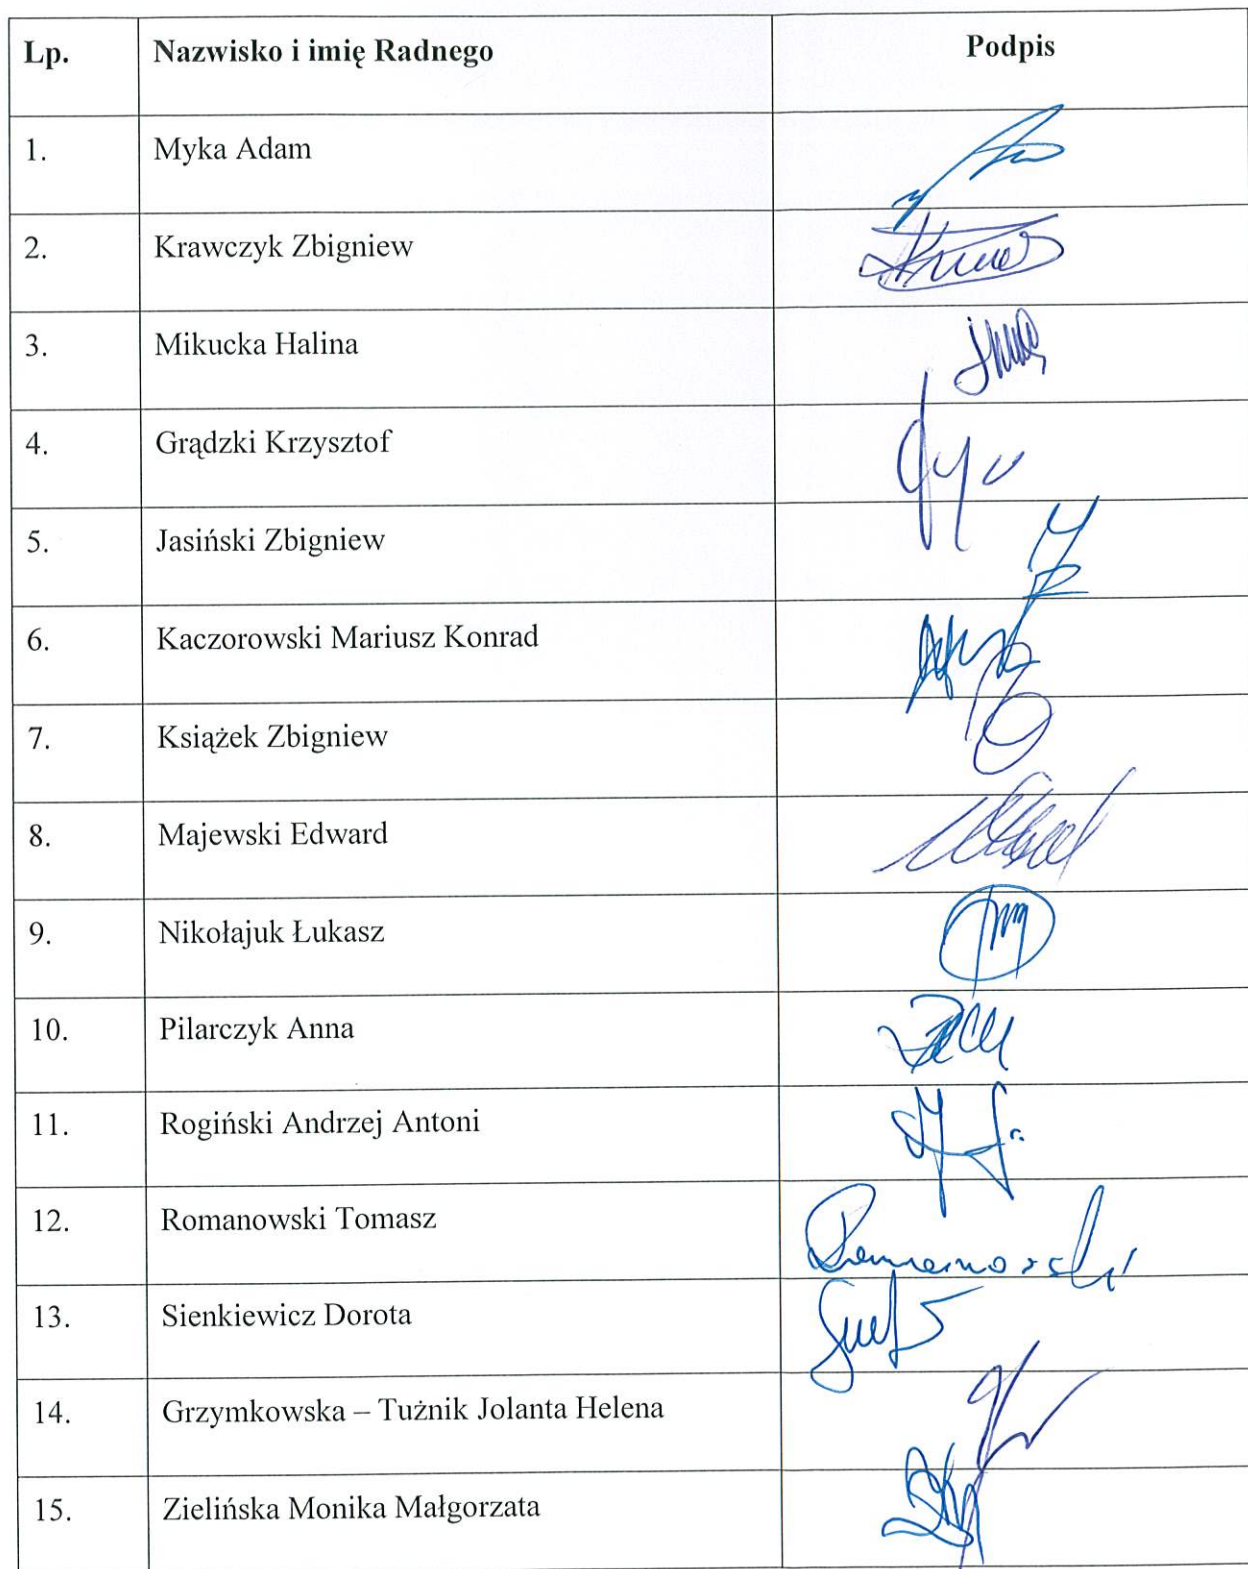 Lp. Nazwisko i imię Radnego Podpis
1. Myka Adam
2. Krawczyk Zbigniew
3. Mikucka Halina
4. Grądzki Krzysztof
5. Jasiński Zbigniew
6. Kaczorowski Mariusz Konrad
7. Książek Zbigniew
8. Majewski Edward
9. Nikołajuk Łukasz
10. Pilarczyk Anna
11. Rogiński Andrzej Antoni
12. Romanowski Tomasz Romanowski
13. Sienkiewicz Dorota
14. Grzymkowska – Tużnik Jolanta Helena
15. Zielińska Monika Małgorzata